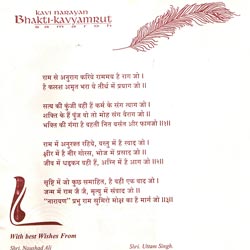 KAVI NARAYAN
BHAKTI-KAVYAMRUT
SAMAROH
राम से अनुराग करिये राममय है राग जो ।
है कलश अमृत भरा ये तीर्थ में प्रयाग जो ॥
सत्य की कुंजी यही है कर्म के संग त्याग जो ।
शक्ति के हैं पुंज वो तो मोह संग वैराग जो ।
भक्ति की गंगा है बहती नित बसंत और फागजो ॥
राम में अनुरक्त रहिये, वस्तु में है स्वाद जो ।
क्षीर में है नीर सोरस, भोज में प्रसाद जो ।
जीव में धड़कन वही है, अग्नि में है आग जो ॥
सृष्टि में जो कुछ समाहित, है वही एक याद जो ।
जन्म में राम जै जै, मृत्यु में संवाद जो ।
"नारायण" प्रभु राम सुमिरो मोक्ष का है मार्ग जो ॥
With best Wishes From
Shri. Naushad Ali
Shri. Uttam Singh